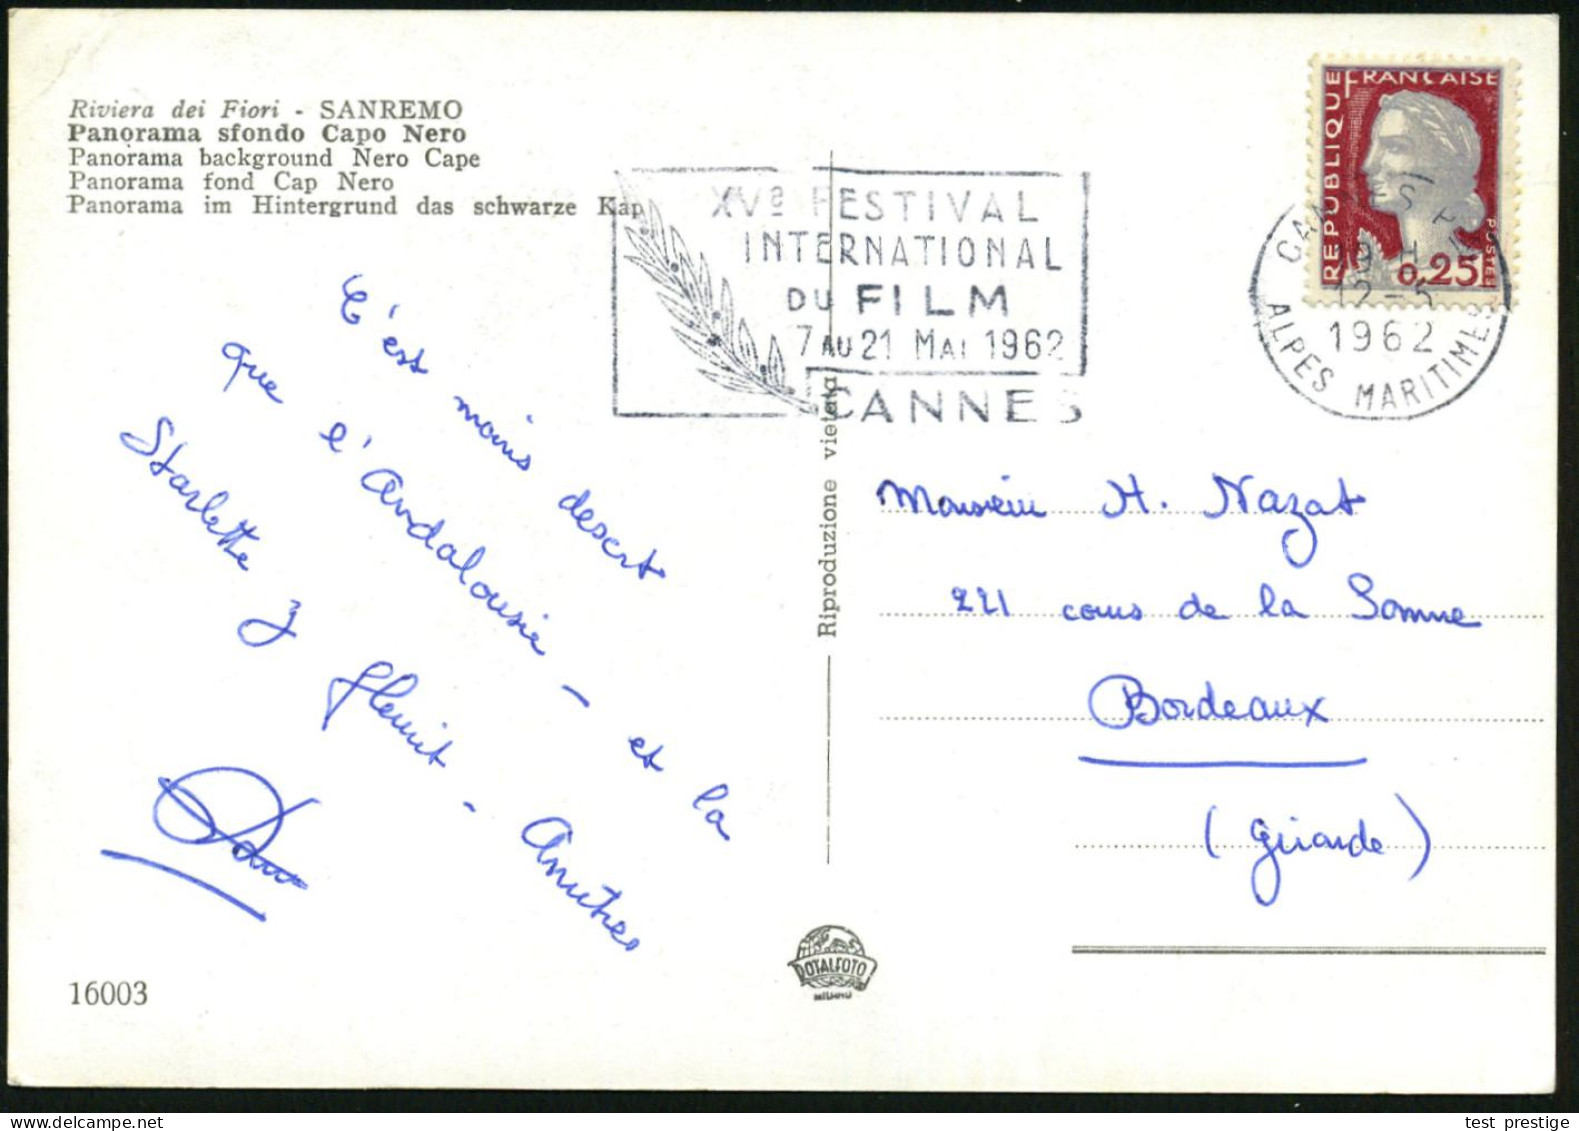 Riviera dei Fiori - SANREMO
Panorama sfondo Capo Nero
Panorama background Nero Cape
Panorama fond Cap Nero
Panorama im Hintergrund das schwarze Kap
XVe FESTIVAL
INTERNATIONAL
DU FILM
7 AU 21 MAI 1962
CANNES
REPUBLIQUE FRANÇAISE
0,25F
POSTES
CANNES
12-5
1962
ALPES MARITIMES
C'est moins desert
que l'Andalousie - et la
Starlette y fleurit - Amitiés
Riproduzione vietata
Monsieur H. Nazat
221 cours de la Somme
Bordeaux
(Gironde)
ROTALFOTO
MILANO
16003
test prestige